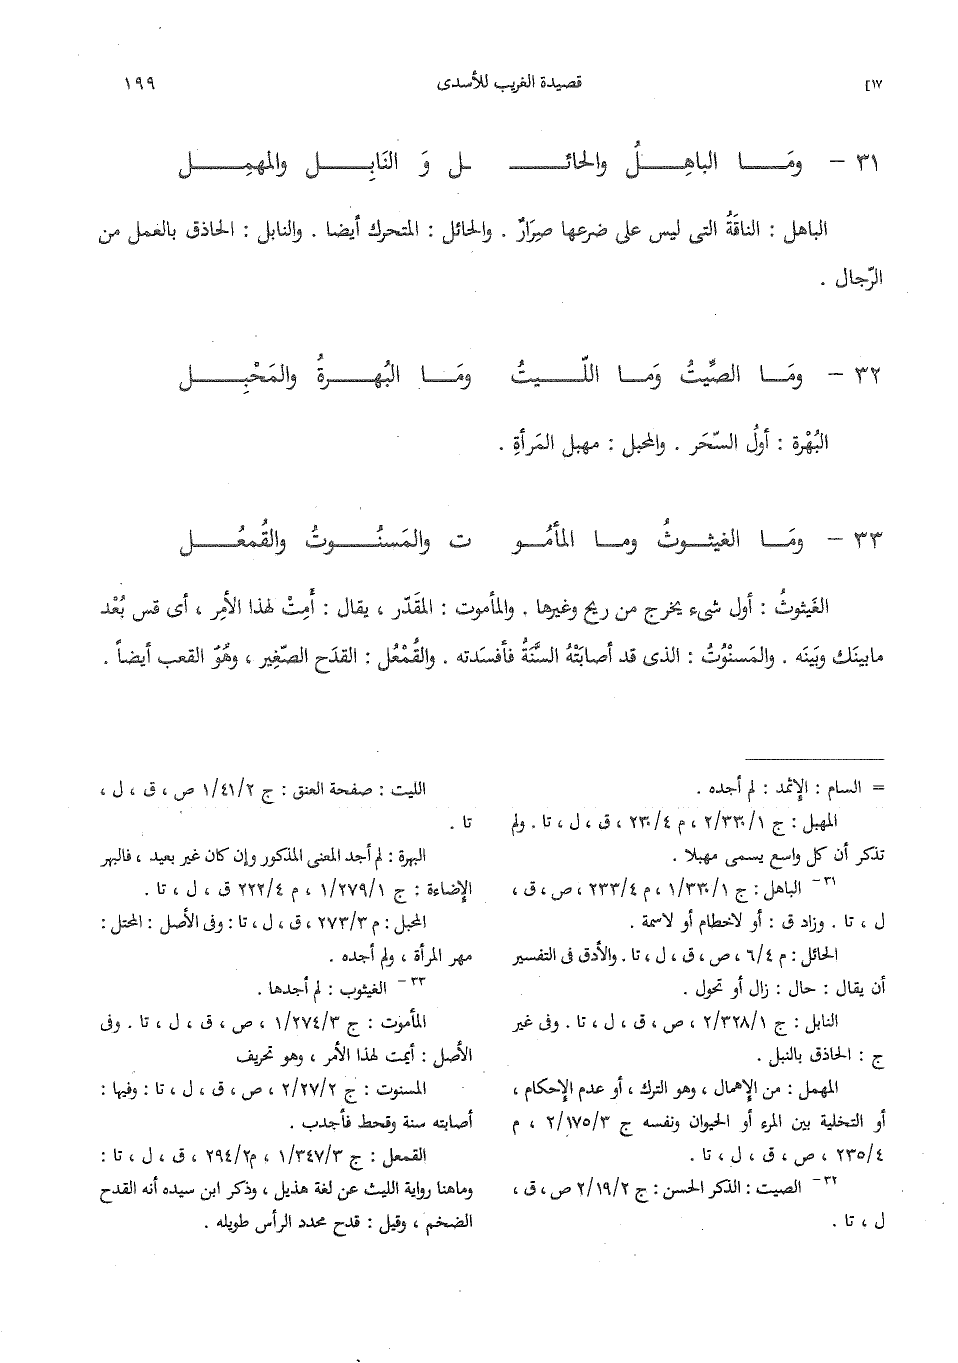 ١٧] قصيدة الغريب للأسدى ١٩٩
٣١ – ومَـا الباهِـلُ والحائـ ـل وَ النَابِـل والمهمِـل
الباهل : الناقَةُ التى ليس على ضرعها صِرَارٌ . والحائل : المتحرك أيضا . والنابل : الحاذق بالعمل من
الرّجال .
٣٢ – ومَـا الصِّيتُ وَمـا اللّـيتُ ومَـا البُهـرةُ والمَحْبِـل
البُهْرة : أولُ السّحَر . والمحبل : مهبل المَرأةِ .
٣٣ – ومَـا الغيثـوثُ ومـا المأمُـو ت والمَسنُـوتُ والقُمعُـل
الغَيثوثُ : أول شىء يخرج من ريح وغيرها . والمأموت : المقَدّر ، يقال : أَمِتْ لهذا الأمِر ، أى قس بُعْد
مابينَك وبَينَه . والمَسنْوُتُ : الذى قد أصابَتْهُ السَّنَةُ فأفسَدته . والقُمْعُل : القدَح الصّغِير ، وهُوّ القعب أيضاً .
= السام : الإثمد : لم أجده .
المهبل : ج ٢/٣٣٠/١ ، م ٢٣٠/٤ ، ق ، ل ، تا . ولم
تذكر أن كل واسع يسمى مهبلا .
٣١– الباهل : ج ١/٣٣٠/١ ، م ٢٣٣/٤ ، ص ، ق ،
ل ، تا . وزاد ق : أو لاخطام أو لاسمة .
الحائل : م ٦/٤ ، ص ، ق ، ل ، تا . والأدق فى التفسير
أن يقال : حال : زال أو تحول .
النابل : ج ٢/٣٢٨/١ ، ص ، ق ، ل ، تا . وفى غير
ج : الحاذق بالنبل .
المهمل : من الإهمال ، وهو الترك ، أو عدم الإحكام ،
أو التخلية بين المرء أو الحيوان ونفسه ج ٢/١٧٥/٣ ، م
٢٣٥/٤ ، ص ، ق ، ل ، تا .
٣٢– الصيت : الذكر الحسن : ج ٢/١٩/٢ ص ، ق ،
ل ، تا .
الليت : صفحة العنق : ج ١/٤١/٢ ص ، ق ، ل ،
تا .
البهرة : لم أجد المعنى المذكور وإن كان غير بعيد ، فالبهر
الإضاءة : ج ١/٢٧٩/١ ، م ٢٢٢/٤ ق ، ل ، تا .
المحبل : م ٢٧٣/٣ ، ق ، ل ، تا : وفى الأصل : المحتل :
مهر المرأة ، ولم أجده .
٣٣– الغيثوب : لم أجدها .
المأموت : ج ١/٢٧٤/٣ ، ص ، ق ، ل ، تا . وفى
الأصل : أيمت لهذا الأمر ، وهو تحريف
المسنوت : ج ٢/٢٧/٢ ، ص ، ق ، ل ، تا : وفيها :
أصابته سنة وقحط فأجدب .
القمعل : ج ١/٣٤٧/٣ ، م٢٩٤/٢ ، ق ، ل ، تا :
وماهنا رواية الليث عن لغة هذيل ، وذكر ابن سيده أنه القدح
الضخم ، وقيل : قدح محدد الرأس طويله .